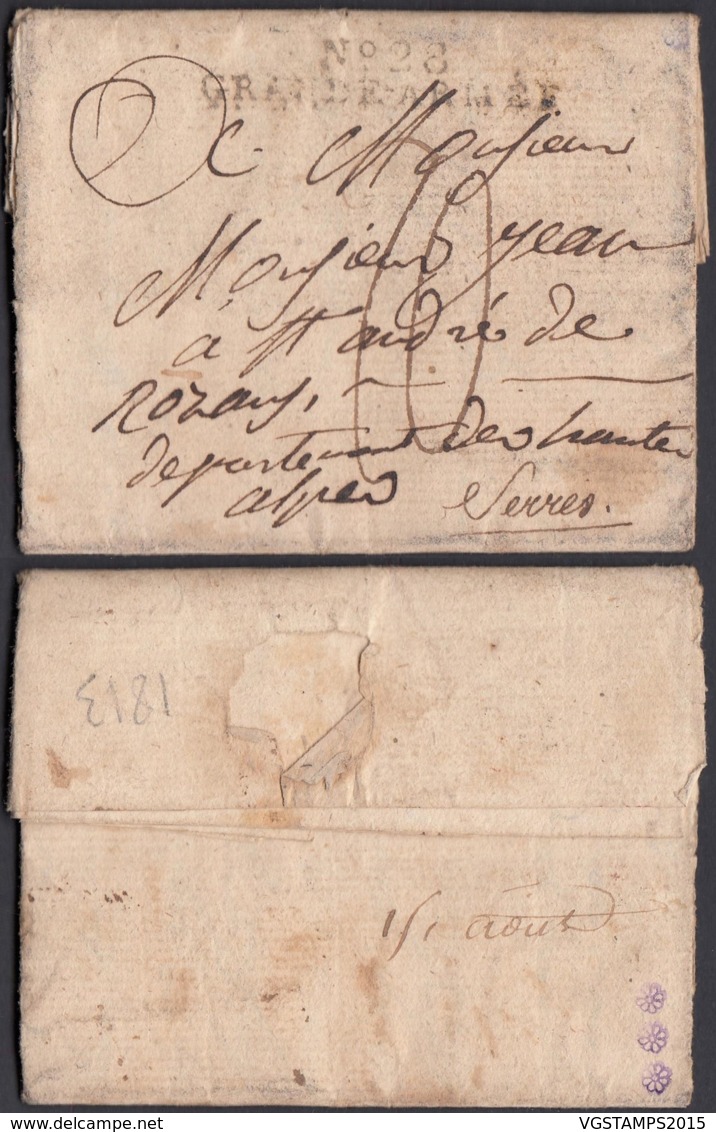 No 28
GRANDE-ARMÉE
A Monsieur
Monsieur jean
a st andré de
rozans,
departement des hautes
alpes
Serres.
1813
15 aout
VGSTAMPS2015